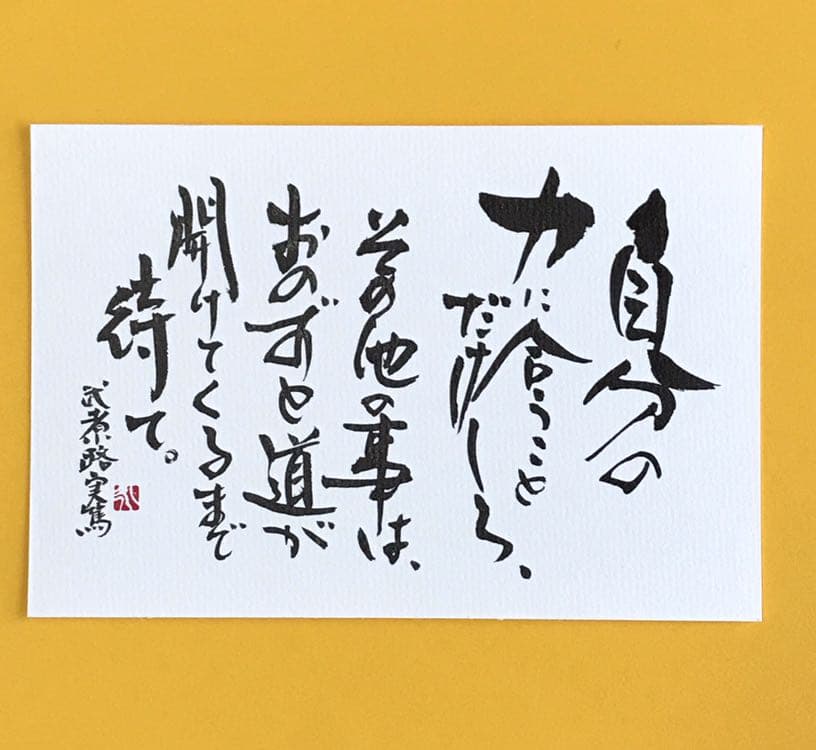 自分の
力に合うこと
だけしろ、
その他の事は、
おのずと道が
開けてくるまで
待て。
武者小路実篤